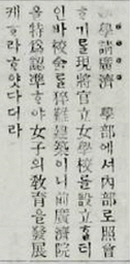 學請廣濟 學部에서內部로照會
ᄒᆞ기를現將官立女學校를設立ᄒᆞᆯ터
인바校舍를猝難建築이니前廣濟院
을特爲認準ᄒᆞ야女子의敎育을發展
케ᄒᆞ라ᄒᆞ얏다더라